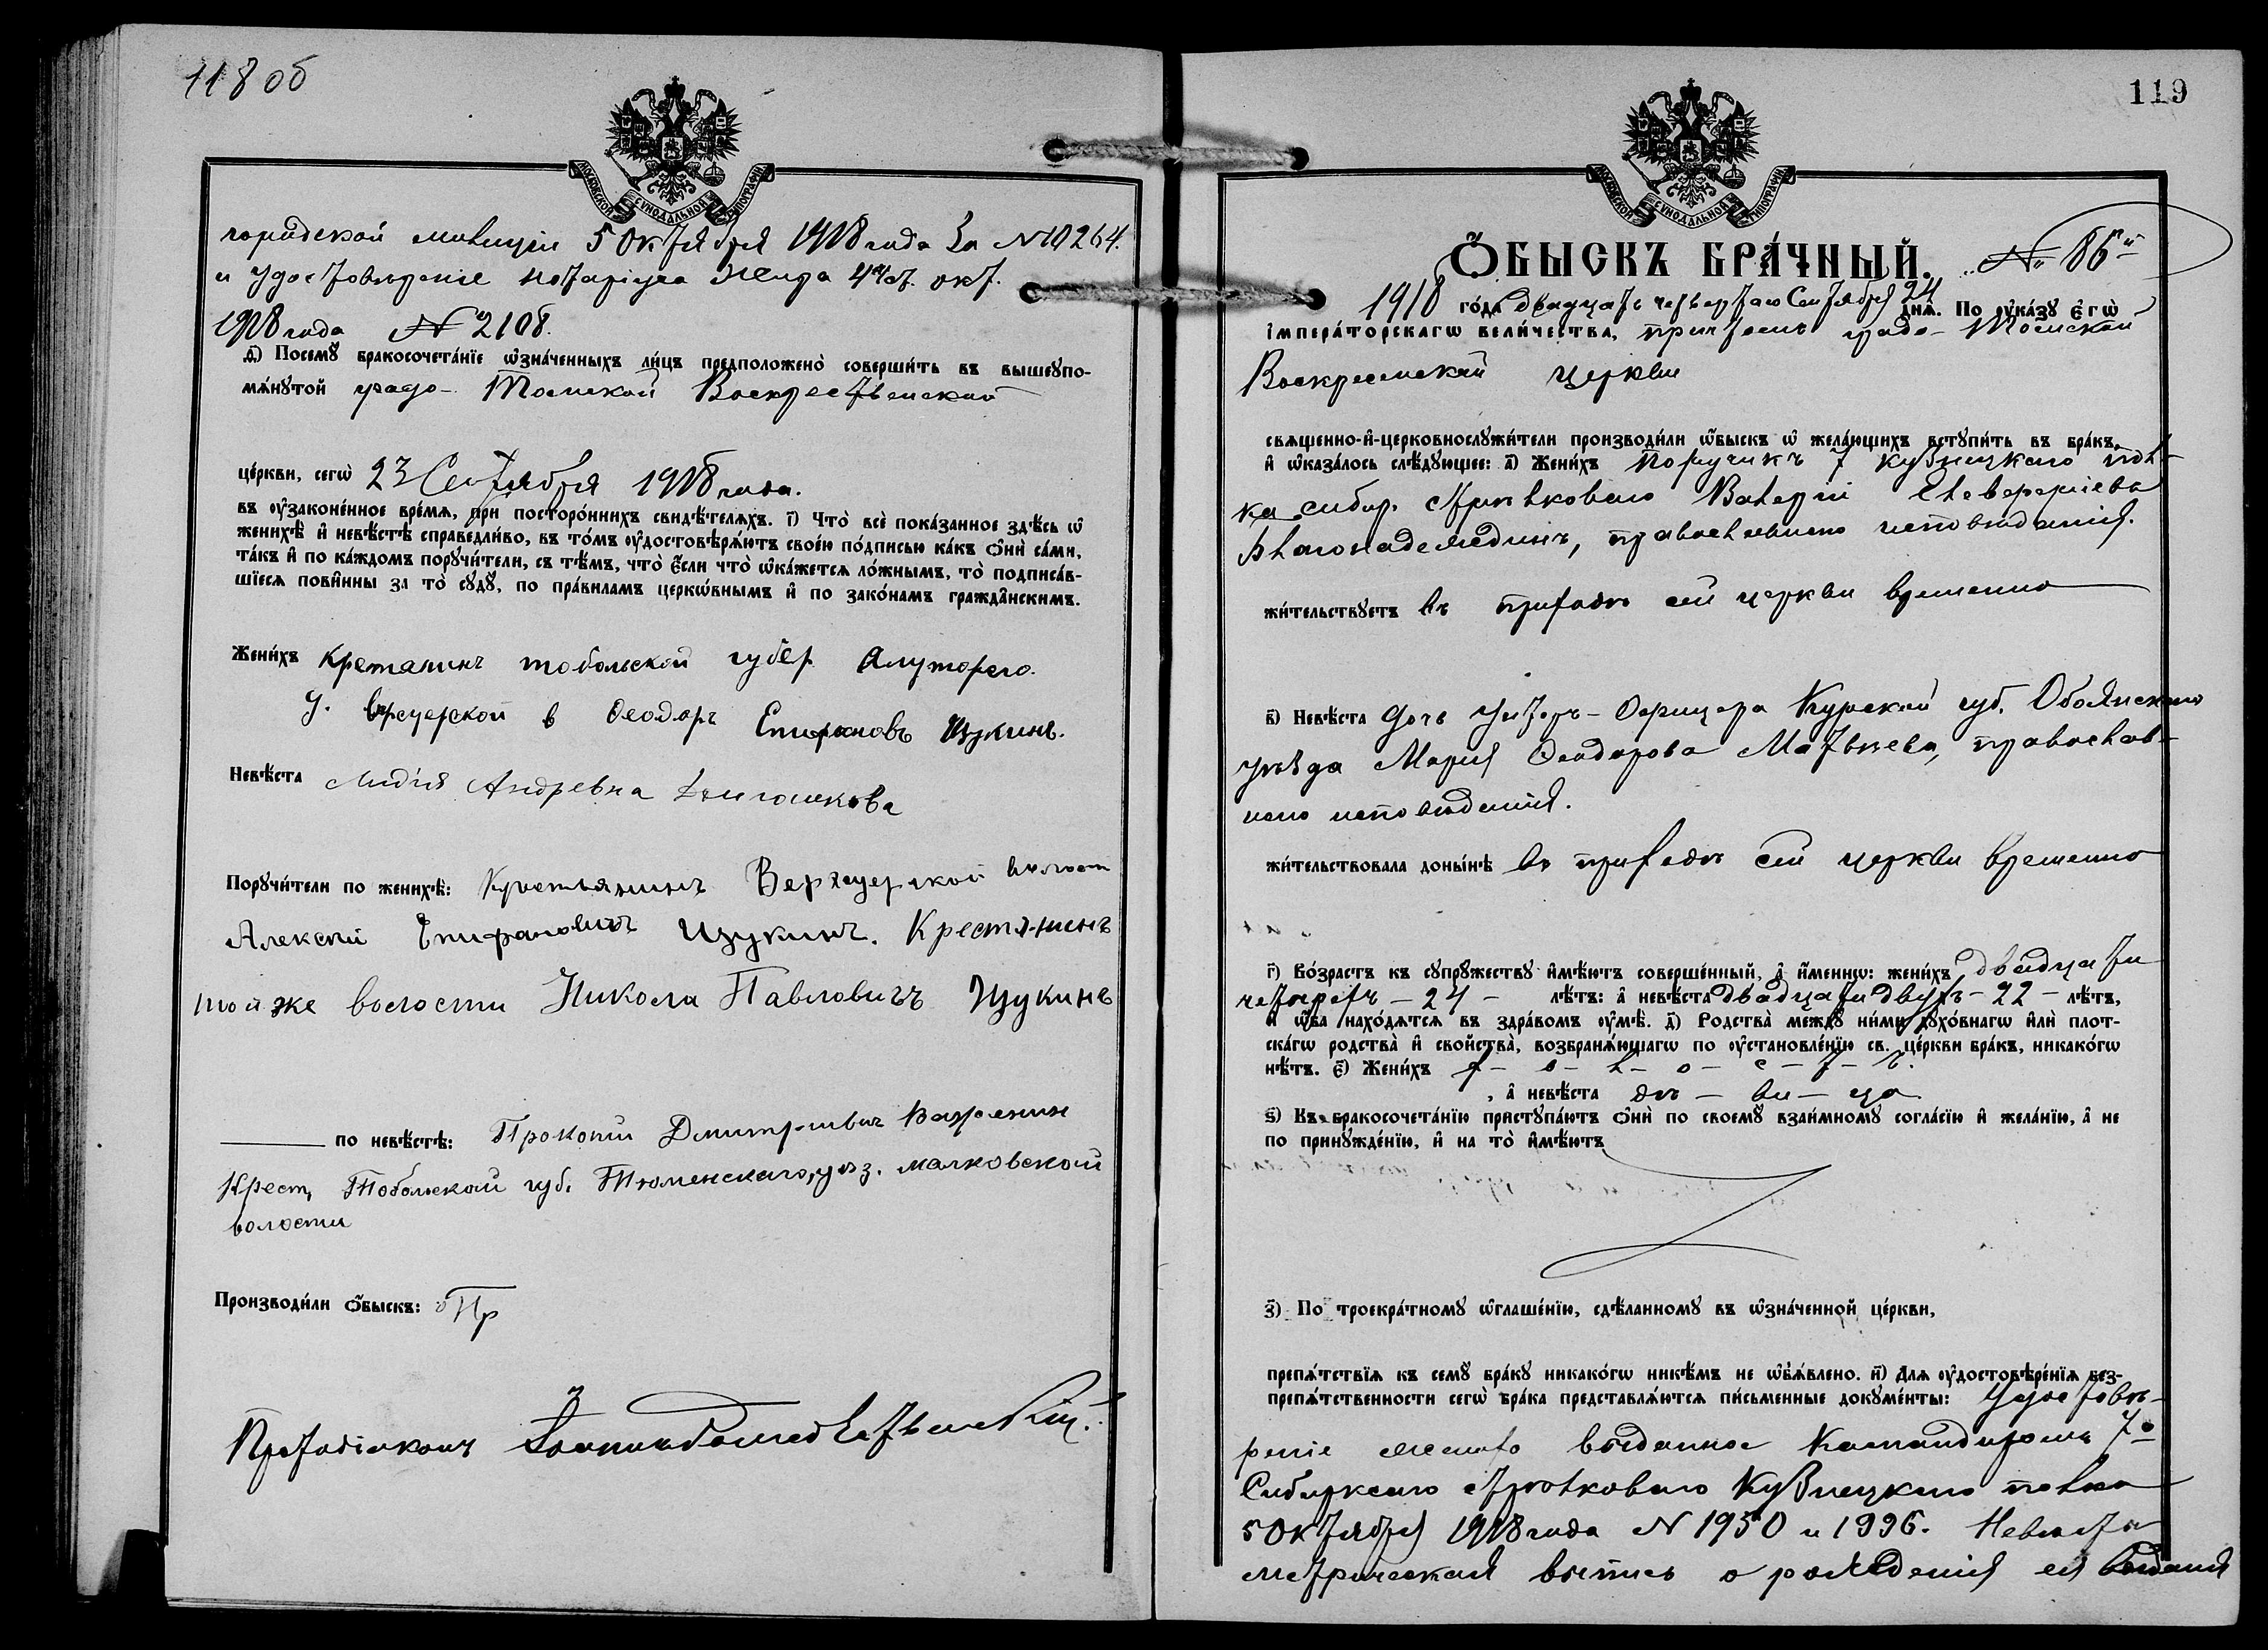 118 об
МОСКОВСКОЙ СѴНОДАЛЬНОЙ ТИПОГРАФІИ
городской милиціи 5 Октября 1918 года за № 10264.
и удостовѣреніе нотаріуса 4 окт.
1918 года № 2108.
д҃) Посемꙋ̀ бракосочета́нїе ѡ҆зна́ченныхъ ли́цъ предположено̀ соверши́ть въ вышеꙋпо-
мѧ́нꙋтой градо-Томской Воскресенской
це́ркви, сегѡ̀ 23 Сентября 1918 года.
въ ᲂу҆законе́нное вре́мѧ, при посторо́ннихъ свидѣ́телѧхъ. і҃) Что̀ всѐ пока́занное здѣ́сь ѡ҆
женихѣ̀ и҆ невѣ́стѣ справедли́во, въ то́мъ ᲂу҆достовѣрѧ́ютъ свое́ю по́дписью ка́къ ѻ҆нѝ са́ми,
та́къ и҆ по ка́ждомъ порꙋчи́тели, съ тѣ́мъ, что̀ є҆́сли что̀ ѡ҆ка́жетсѧ ло́жнымъ, то̀ подписа́в-
шїесѧ пови́нны за то̀ сꙋдꙋ̀, по пра́виламъ церкѡ́внымъ и҆ по зако́намъ гражда̑нскимъ.
Жени́хъ Кретанинъ тобольской губер Ялуторого.
у. в Феодоръ Епифановъ Щукинъ.
Невѣ́ста Лидія Андревна
Порꙋчи́тели по женихѣ̀: Крестьянинъ волост
Алексѣй Епифановичъ Щукинъ. Крестянинъ
той же волости Никола Павловичъ Щукинъ
по невѣ́стѣ: Прокопій Дмитріевич
Крест, Тобольской губ. Тюменскаго, уѣз. малковской
волости
Производи́ли ѻ҆́быскъ: Пр
Протодіаконъ
119
МОСКОВСКОЙ СѴНОДАЛЬНОЙ ТИПОГРАФІИ
Ѻ҆́БЫСКЪ БРА́ЧНЫЙ. № 86й
1918 го́да двадцать четвертаго Сентября 24 днѧ̀. По ᲂу҆ка́зꙋ Є҆гѡ̀
І҆мпера́торскагѡ вели́чества, причтомъ градо-Томской
Воскресенской церкви
свѧще́нно-и҆-церковнослꙋжи́тели производи́ли ѻ҆́быскъ ѡ҆ жела́ющихъ встꙋпи́ть въ бра́къ,
и҆ ѡ҆каза́лось слѣ́дꙋющее: а҃) Жени́хъ Поручикъ 7 Кузнецкаго пол-
ка сибир. стрѣлковаго Валерій Елеверфіевъ
Благонадеждинъ, православнаго исповѣданія.
жи́тельствꙋетъ въ приходѣ сей церкви временно
в҃) Невѣ́ста дочь унтеръ-Офицера Курской губ. Обоянскаго
уѣзда Марія Феодорова Матвѣева, православ-
наго исповѣданія.
жи́тельствовала доны́нѣ въ приходѣ сей церкви временно
г҃) Во́зрастъ къ сꙋпрꙋ́жествꙋ и҆мѣ́ютъ соверше́нный, а҆ и҆́меннѡ: жени́хъ двадцати
четырехъ - 24 - лѣ́тъ: а҆ невѣ́ста двадцати двухъ - 22 - лѣ́тъ,
и҆ ѻ҆́ба нахо́дѧтсѧ въ здра́вомъ ᲂу҆мѣ̀. д҃) Родства̀ междꙋ̀ ни́ми дꙋхо́внагѡ и҆лѝ пло́т-
скагѡ родства̀ и҆ сво́йства, возбранѧ́ющагѡ по ᲂу҆становле́нїю св. це́ркви бра́къ, никако́гѡ
нѣ́тъ. є҃) Жени́хъ х - о - л - о - с - т - ъ.
, а҆ невѣ́ста дѣ - ви - ца
ѕ҃) Къ бракосочета́нїю пристꙋпа́ютъ ѻ҆нѝ по своемꙋ̀ взаи́мномꙋ согла́сїю и҆ жела́нїю, а҆ не
по принꙋжде́нїю, и҆ на то̀ и҆мѣ́ютъ
з҃) По троекра́тномꙋ ѡ҆глаше́нїю, сдѣ́ланномꙋ въ ѡ҆зна́ченной це́ркви,
препѧ́тствїѧ къ семꙋ̀ бра́кꙋ никако́гѡ никѣ́мъ не ѡ҆б̾ѧ́влено. и҃) Для ᲂу҆достовѣре́нїѧ без-
препѧ́тственности сегѡ̀ бра́ка представлѧ́ютсѧ пи́сьменные докꙋме́нты: Удостовѣ-
реніе жениха выданное Командиромъ 7го
Сибирскаго стрѣлковаго Кузнецкаго полка
5 Октября 1918 года № 1950 и 1996. Невѣсты
метрическая выпись о рожденія ея выданая